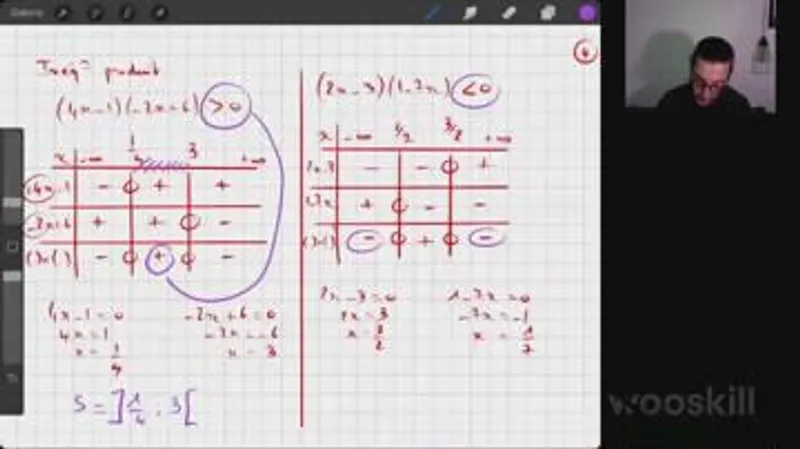 6
product
(4x-1)(-2x+6) >0
x -∞ 1/4 3 +∞
4x-1 - 0 + +
-2x+6 + + 0 -
( )x( ) - 0 + 0 -
4x-1=0
4x=1
x=1/4
-2x+6=0
-2x=-6
x=3
S=]1/4;3[
(2x-3)(1-7x) <0
x -∞ 3/2 +∞
2x-3 - - 0 +
1-7x + 0 - -
( )x( ) - 0 + 0 -
2x-3=0
2x=3
x=3/2
1-7x=0
-7x=-1
x=1/7
wooskill